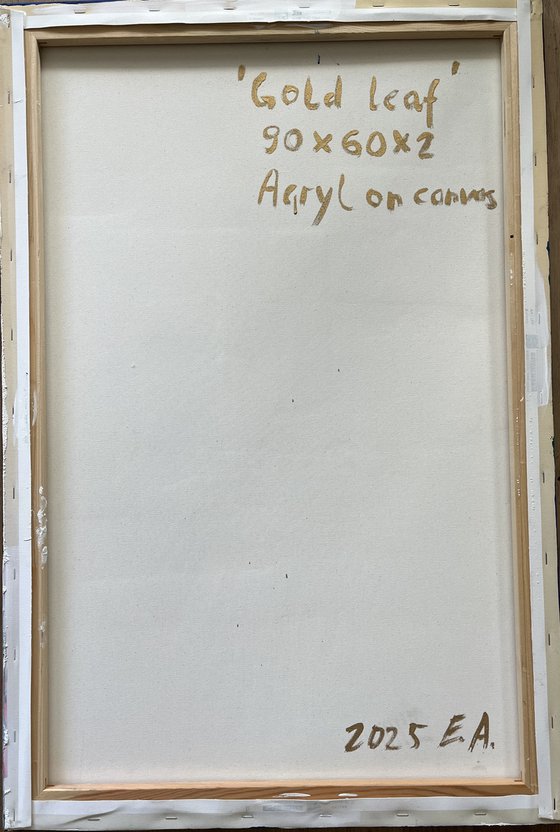 'Gold leaf'
90x60x2
Acryl on canvas
2025 E.A.